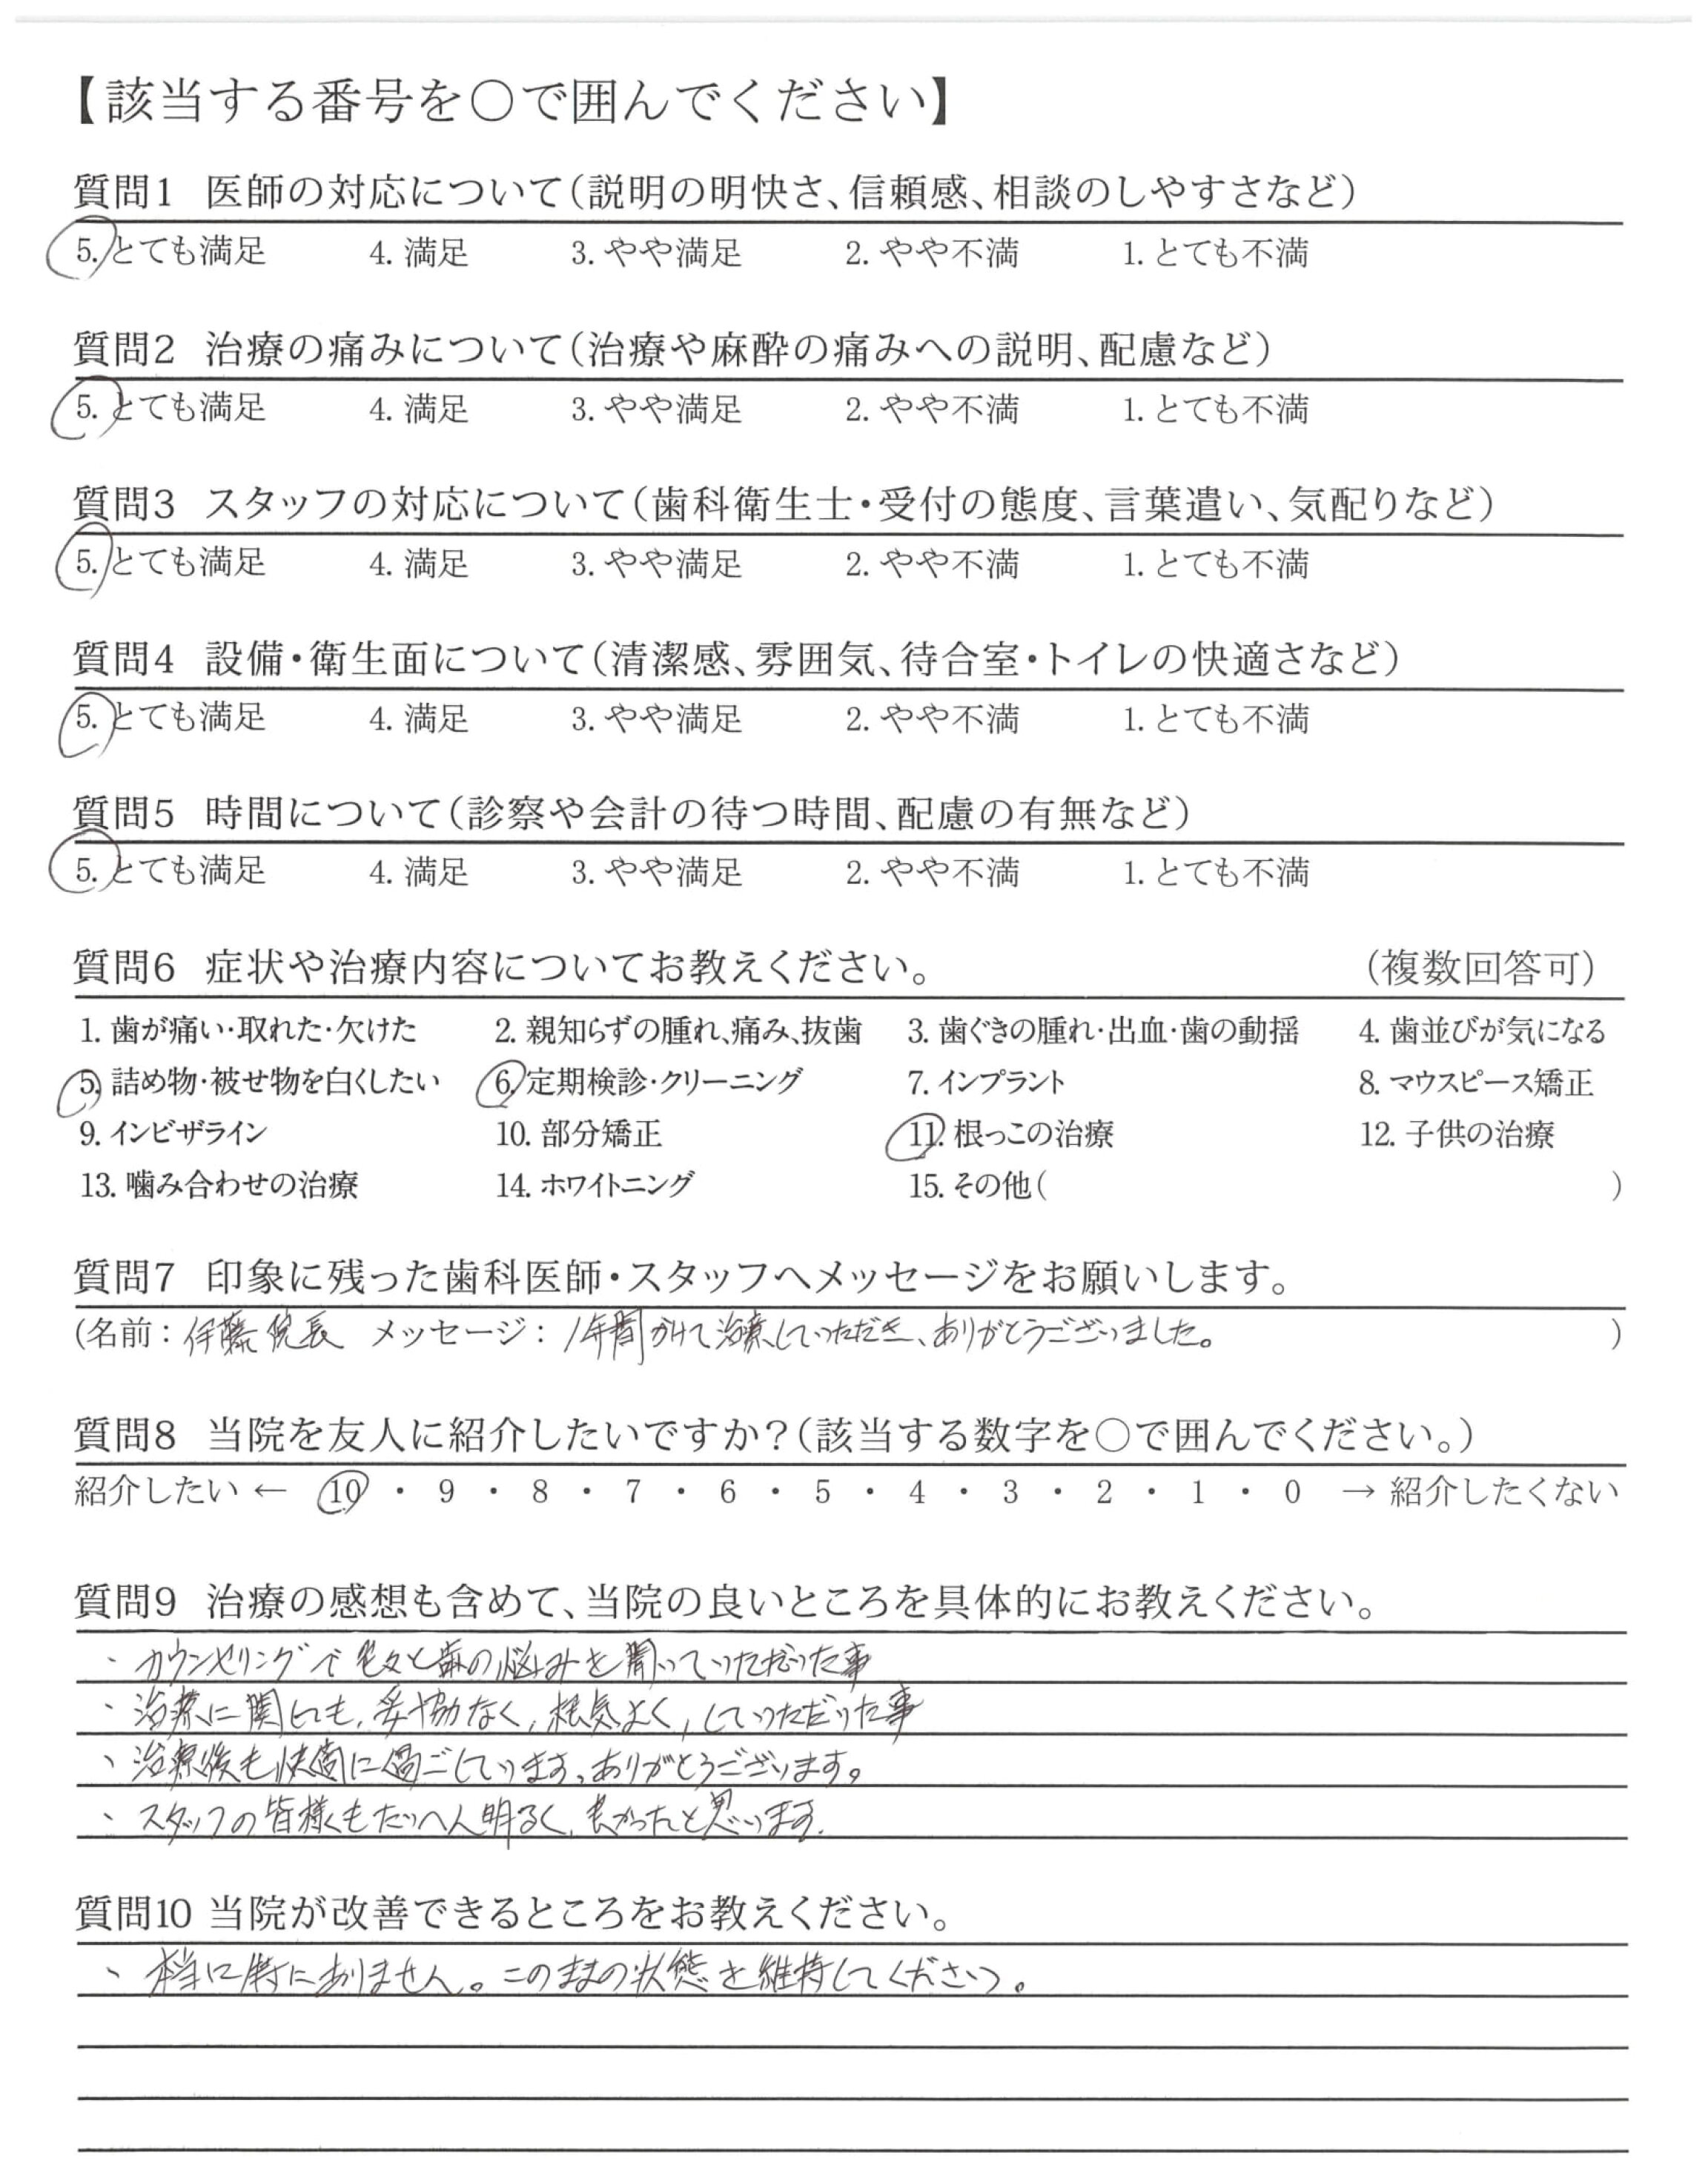 【該当する番号を○で囲んでください】
質問1 医師の対応について(説明の明快さ、信頼感、相談のしやすさなど)
5. とても満足 4. 満足 3. やや満足 2. やや不満 1. とても不満
質問2 治療の痛みについて(治療や麻酔の痛みへの説明、配慮など)
5. とても満足 4. 満足 3. やや満足 2. やや不満 1. とても不満
質問3 スタッフの対応について(歯科衛生士・受付の態度、言葉遣い、気配りなど)
5. とても満足 4. 満足 3. やや満足 2. やや不満 1. とても不満
質問4 設備・衛生面について(清潔感、雰囲気、待合室・トイレの快適さなど)
5. とても満足 4. 満足 3. やや満足 2. やや不満 1. とても不満
質問5 時間について(診察や会計の待つ時間、配慮の有無など)
5. とても満足 4. 満足 3. やや満足 2. やや不満 1. とても不満
質問6 症状や治療内容についてお教えください。 (複数回答可)
1. 歯が痛い・取れた・欠けた 2. 親知らずの腫れ、痛み、抜歯 3. 歯ぐきの腫れ・出血・歯の動揺 4. 歯並びが気になる
5. 詰め物・被せ物を白くしたい 6. 定期検診・クリーニング 7. インプラント 8. マウスピース矯正
9. インビザライン 10. 部分矯正 11. 根っこの治療 12. 子供の治療
13. 噛み合わせの治療 14. ホワイトニング 15. その他( )
質問7 印象に残った歯科医師・スタッフへメッセージをお願いします。
(名前：伊藤院長 メッセージ：1年間かけて治療していただき、ありがとうございました。 )
質問8 当院を友人に紹介したいですか？(該当する数字を○で囲んでください。)
紹介したい ← 10 ・ 9 ・ 8 ・ 7 ・ 6 ・ 5 ・ 4 ・ 3 ・ 2 ・ 1 ・ 0 → 紹介したくない
質問9 治療の感想も含めて、当院の良いところを具体的にお教えください。
・カウンセリングで色々と歯の悩みを聞いていただいた事
・治療に関しても、妥協なく、根気よく、していただいた事
・治療後も快適に過ごしています。ありがとうございます。
・スタッフの皆様もたいへん明るく、良かったと思います。
質問10 当院が改善できるところをお教えください。
・本当に特にありません。このままの状態を維持してください。